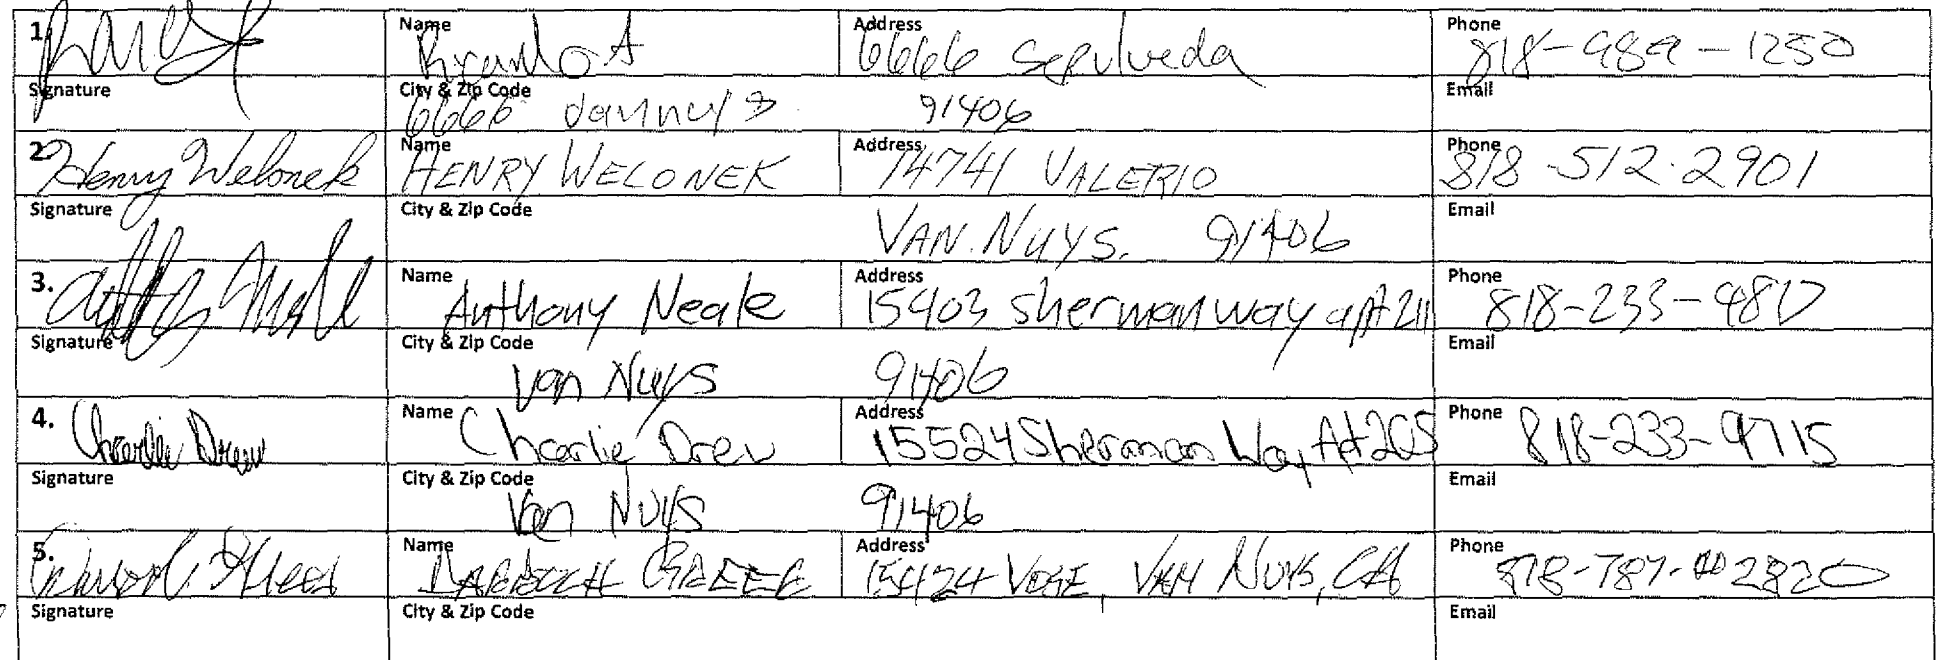 1. Name Ricardo A Address 6666 Sepulveda Phone 818-989-1250
Signature City & Zip Code Email
6666 vannuys 91406
2. Henry Welonek Name HENRY WELONEK Address 14741 VALERIO Phone 818-512-2901
Signature City & Zip Code Email
VAN NUYS. 91406
3. Name Anthony Neale Address 15403 Sherman way apt 211 Phone 818-233-
Signature City & Zip Code Email
Van Nuys 91406
4. Charlie Drew Name Charlie Drew Address 15524 Sherman Way Phone 818-233-9715
Signature City & Zip Code Email
Van Nuys 91406
5. Name Address 15424 VOSE, VAN NUYS, CA Phone 818-787-2820
Signature City & Zip Code Email